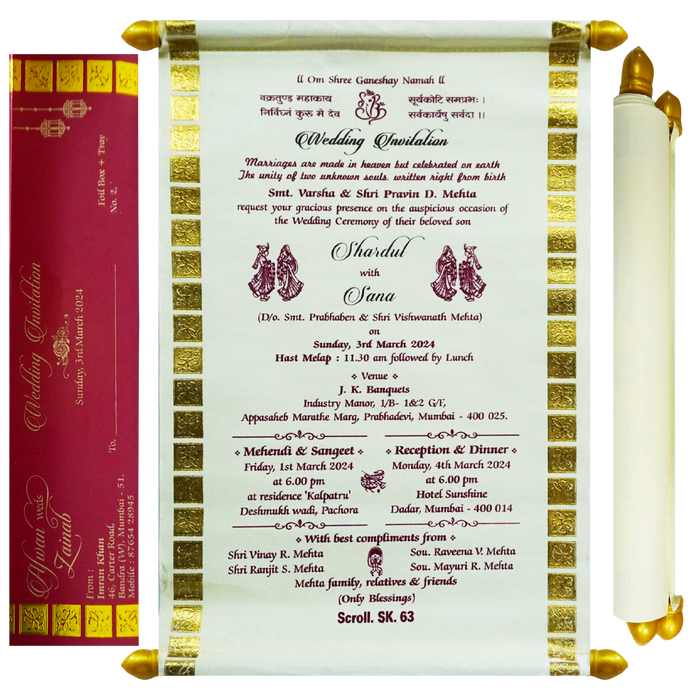 Foil Box + Tray
No. 2,
Wedding Invitation
Sunday, 3rd March 2024
To,
Afwan weds
Zainab
From :
Imran Khan
46, Carter Road,
Bandra (W), Mumbai - 51.
Mobile : 87654 28945
॥ Om Shree Ganeshay Namah ॥
वक्रतुण्ड महाकाय सूर्यकोटि समप्रभः ।
निर्विघ्नं कुरू मे देव सर्वकार्येषु सर्वदा ।।
Wedding Invitation
Marriages are made in heaven but celebrated on earth
The unity of two unknown souls, written right from birth
Smt. Varsha & Shri Pravin D. Mehta
request your gracious presence on the auspicious occasion of
the Wedding Ceremony of their beloved son
Shardul
with
Sana
(D/o. Smt. Prabhaben & Shri Vishwanath Mehta)
on
Sunday, 3rd March 2024
Hast Melap : 11.30 am followed by Lunch
Venue
J. K. Banquets
Industry Manor, 1/B- 1&2 G/F,
Appasaheb Marathe Marg, Prabhadevi, Mumbai - 400 025.
Mehendi & Sangeet
Friday, 1st March 2024
at 6.00 pm
at residence 'Kalpatru'
Deshmukh wadi, Pachora
Reception & Dinner
Monday, 4th March 2024
at 6.00 pm
Hotel Sunshine
Dadar, Mumbai - 400 014
With best compliments from
Shri Vinay R. Mehta Sou. Raveena V. Mehta
Shri Ranjit S. Mehta Sou. Mayuri R. Mehta
Mehta family, relatives & friends
(Only Blessings)
Scroll. SK. 63